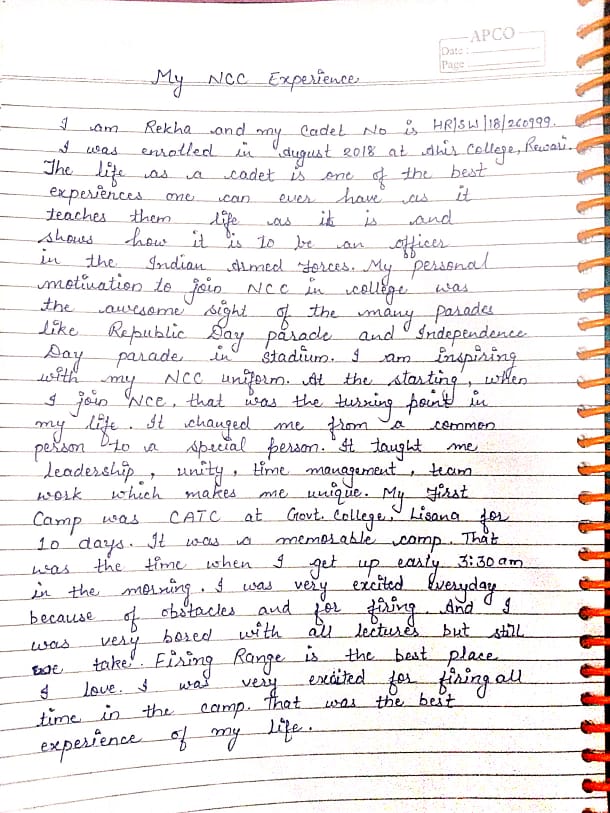 APCO
Date :
Page
My NCC Experience
I am Rekha and my Cadet No is HR/SW/18/260999.
I was enrolled in August 2018 at this College, Rewari.
The life as a cadet is one of the best
experiences one can ever have as it
teaches them life as it is and
shows how it is to be an officer
in the Indian Armed Forces. My personal
motivation to join NCC in college was
the awesome sight of the many parades
like Republic Day parade and Independence
Day parade in stadium. I am inspiring
with my NCC uniform. At the starting, when
I join NCC, that was the turning point in
my life. It changed me from a common
person to a special person. It taught me
leadership, unity, time management, team
work which makes me unique. My First
Camp was CATC at Govt. College, Lisana for
10 days. It was a memorable camp. That
was the time when I get up early 3:30 am
in the morning. I was very excited everyday
because of obstacles and for firing. And I
was very bored with all lectures but still
we take. Firing Range is the best place
I love. I was very excited for firing all
time in the camp. That was the best
experience of my life.